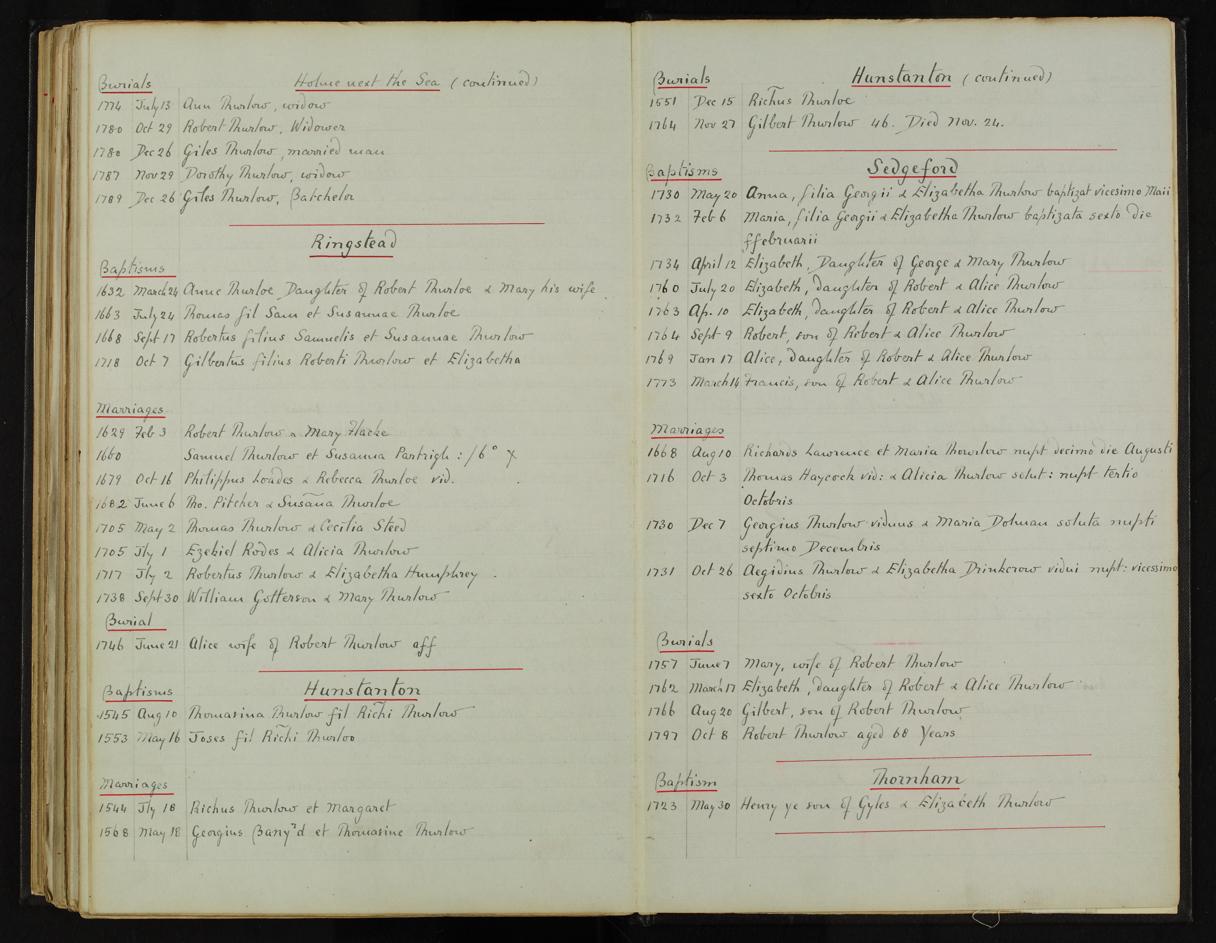 Burials Holme next the Sea (continued)
1774 July 13 Ann Thurlow, widow
1780 Oct 29 Robert Thurlow, Widower
1780 Dec 26 Giles Thurlow, married man
1787 Nov 29 Dorothy Thurlow, widow
1789 Dec 26 Giles Thurlow, Batchelor
Ringstead
Baptisms
1632 March 24 Anne Thurloe Daughter of Robert Thurloe & Mary his wife
1663 July 24 Thomas fil Sam et Susannae Thurloe
1668 Sept 17 Robertus filius Samuelis et Susannae Thurlow
1718 Oct 7 Gilbertus filius Roberti Thurlow et Elizabetha
Marriages
1629 Feb 3 Robert Thurlow & Mary
1660 Samuel Thurlow et Susanna Partrigh : 16°
1679 Oct 16 Philippus Loades & Rebecca Thurloe vid.
1682 June 6 Tho. Pitcher & Susāna Thurloe
1705 May 2 Thomas Thurlow & Cecilia Steed
1705 Jly 1 Ezekiel Rodes & Alicia Thurlow
1717 Jly 2 Robertus Thurlow & Elizabetha Humphrey
1738 Sept 30 William Gotterson & Mary Thurlow
Burial
1746 June 21 Alice wife of Robert Thurlow aff
Baptisms Hunstanton
1545 Aug 10 Thomasina Thurlow fil Richi Thurlow
1553 May 16 Joses fil Richi Thurloo
Marriages
1544 Jly 18 Richus Thurlow et Margaret
1568 May 18 Georgius Banyrd et Thomasine Thurlow
Burials Hunstanton (continued)
1551 Dec 15 Richus Thurloe
1764 Nov 27 Gilbert Thurlow 46. Died Nov. 24.
Sedgeford
Baptisms
1730 May 20 Anna, filia Georgii & Elizabetha Thurlow baptizat vicesimo Maii
1732 Feb 6 Maria, filia Georgii & Elizabetha Thurlow baptizata sexto die
ffebruarii
1734 April 12 Elizabeth, Daughter of George & Mary Thurlow
1760 July 20 Elizabeth, daughter of Robert & Alice Thurlow
1763 Ap. 10 Elizabeth, daughter of Robert & Alice Thurlow
1764 Sept 9 Robert, son of Robert & Alice Thurlow
1769 Jan 17 Alice, daughter of Robert & Alice Thurlow
1773 March 14 Francis, son of Robert & Alice Thurlow
Marriages
1668 Aug 10 Richards Lawrence et Maria Thowrlow nupt decimo die Augusti
1716 Oct 3 Thomas Haycock vid: & Alicia Thurlow solut: nupt tertio
Octobris
1730 Dec 7 Georgius Thurlow viduus & Maria Dolman soluta nupti
septimo Decembris
1731 Oct 26 Aegidius Thurlow & Elizabetha Drinkcrow vidui nupt: vicessimo
sexto Octobris
Burials
1757 June 7 Mary, wife of Robert Thurlow
1762 March 17 Elizabeth, daughter of Robert & Alice Thurlow
1766 Aug 20 Gilbert, son of Robert Thurlow
1797 Oct 8 Robert Thurlow aged 68 Years
Baptism Thornham
1723 May 30 Henry ye son of Gyles & Elizabeth Thurlow